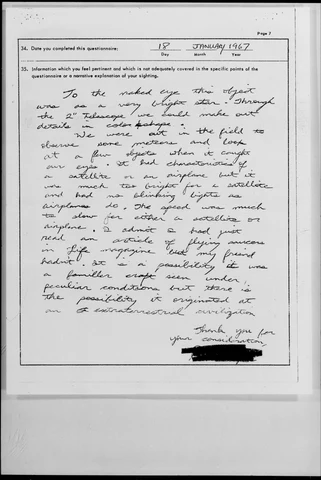 Page 7
34. Date you completed this questionnaire:
18 JANUARY 1967
Day Month Year
35. Information which you feel pertinent and which is not adequately covered in the specific points of the
questionnaire or a narrative explanation of your sighting.
To the naked eye this object
was as a very bright star. Through
the 2" telescope we could make out
details in color & shape.
We were out in the field to
observe some meteors and look
at a few objects when it caught
our eye. It had charactoristics of
a satellite or an airplane but it
was much too bright for a satellite
and had no blinking lights as
airplanes do. The speed was much
to slow for either a satellite or
airplane. I admit I had just
read an article of flying saucers
in Life magazine but my friend
hadn't. It is a possibility it was
a familier craft seen under
peculiar conditions but there is
the possibility it originated at
an extraterrestrial civilization
Thank you for
your consideration,